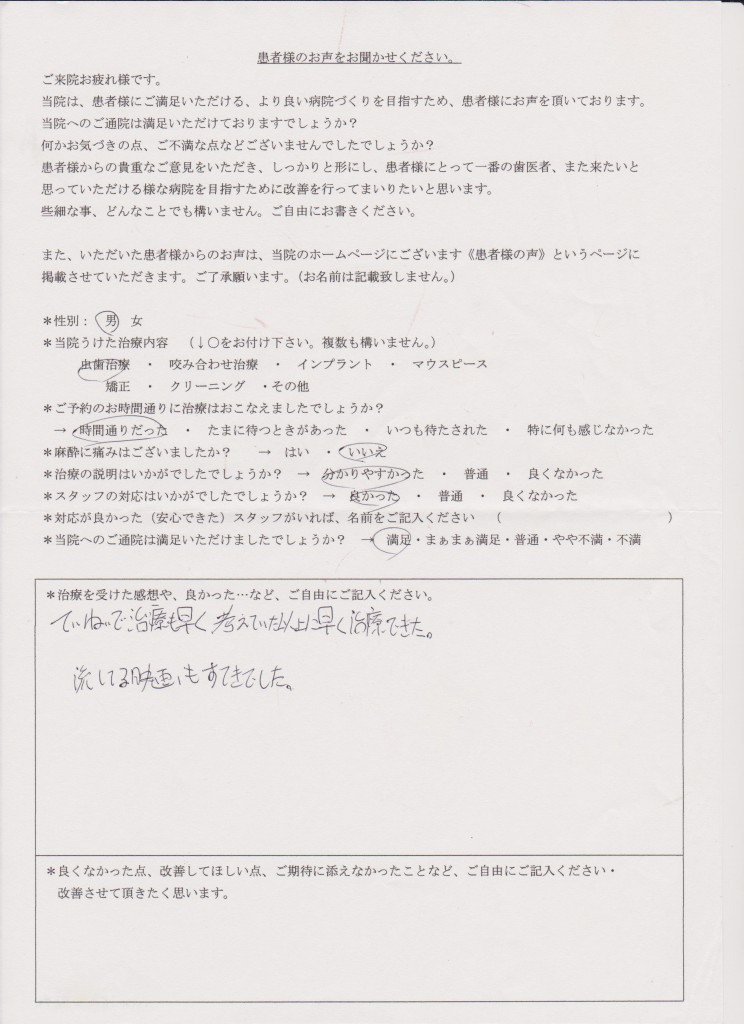 患者様のお声をお聞かせください。
ご来院お疲れ様です。
当院は、患者様にご満足いただける、より良い病院づくりを目指すため、患者様にお声を頂いております。
当院へのご通院は満足いただけておりますでしょうか？
何かお気づきの点、ご不満な点などございませんでしたでしょうか？
患者様からの貴重なご意見をいただき、しっかりと形にし、患者様にとって一番の歯医者、また来たいと
思っていただける様な病院を目指すために改善を行ってまいりたいと思います。
些細な事、どんなことでも構いません。ご自由にお書きください。
また、いただいた患者様からのお声は、当院のホームページにございます《患者様の声》というページに
掲載させていただきます。ご了承願います。（お名前は記載致しません。）
＊性別： 男 女
＊当院うけた治療内容 （↓○をお付け下さい。複数も構いません。）
虫歯治療 ・ 咬み合わせ治療 ・ インプラント ・ マウスピース
矯正 ・ クリーニング ・その他
＊ご予約のお時間通りに治療はおこなえましたでしょうか？
→ ・時間通りだった ・ たまに待つときがあった ・ いつも待たされた ・ 特に何も感じなかった
＊麻酔に痛みはございましたか？ → はい ・ いいえ
＊治療の説明はいかがでしたでしょうか？ → 分かりやすかった ・ 普通 ・ 良くなかった
＊スタッフの対応はいかがでしたでしょうか？ → 良かった ・ 普通 ・ 良くなかった
＊対応が良かった（安心できた）スタッフがいれば、名前をご記入ください （ ）
＊当院へのご通院は満足いただけましたでしょうか？ → 満足・まぁまぁ満足・普通・やや不満・不満
＊治療を受けた感想や、良かった…など、ご自由にご記入ください。
ていねいで治療も早く 考えていた以上に早く治療できた。
流してる映画もすてきでした。
＊良くなかった点、改善してほしい点、ご期待に添えなかったことなど、ご自由にご記入ください・
改善させて頂きたく思います。